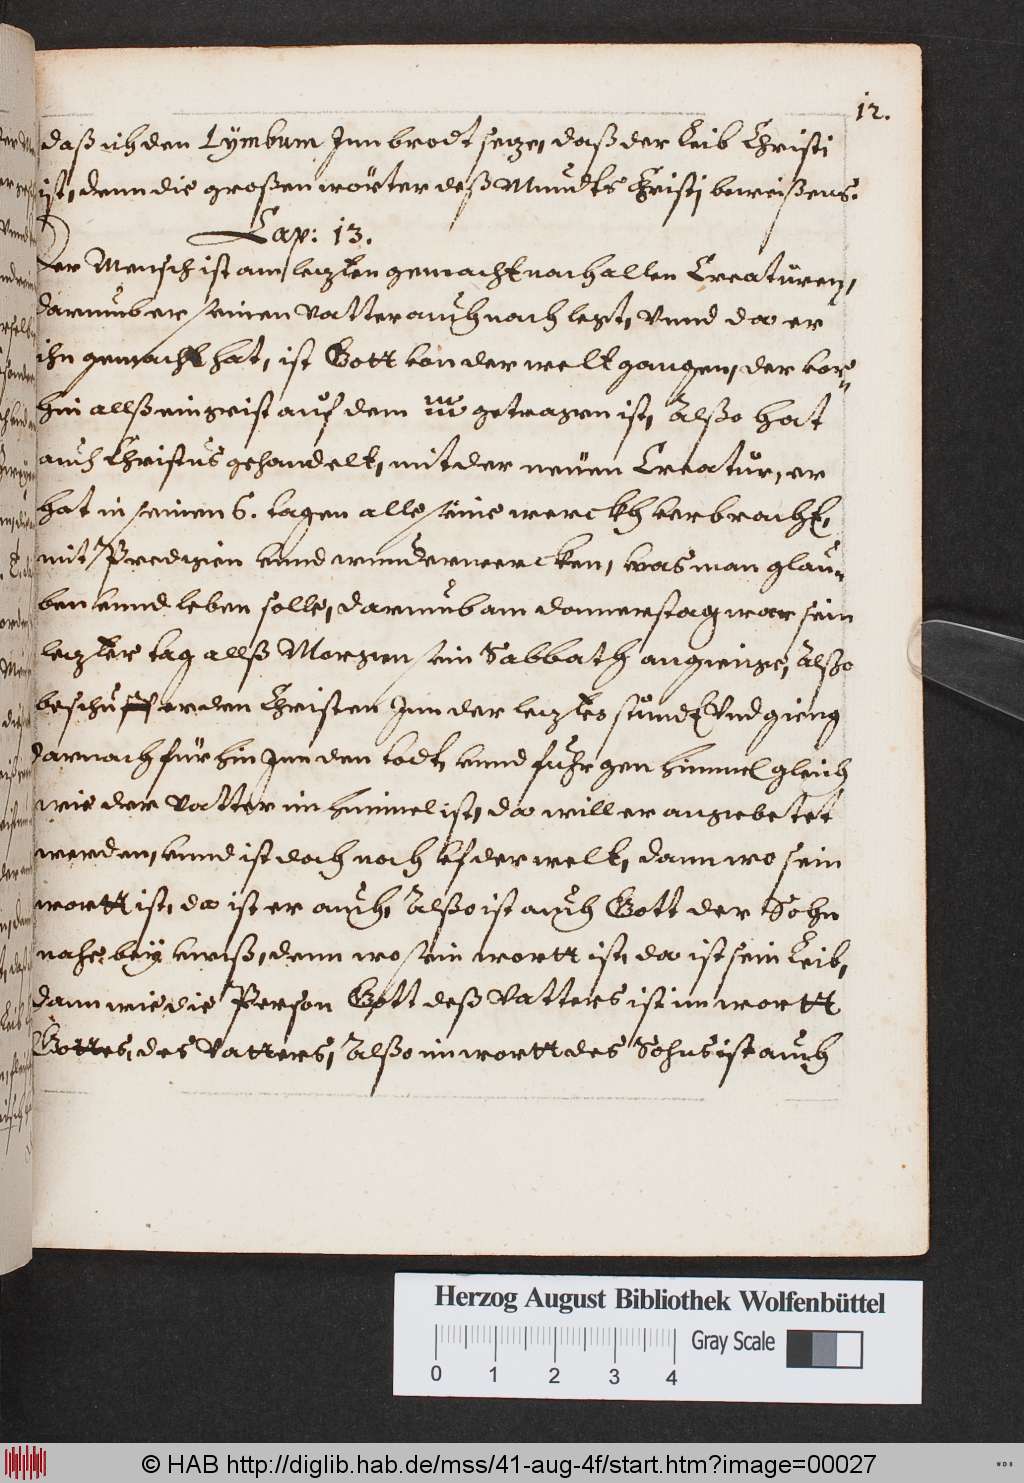 12.
daß ich den Lÿmbum Inn brodt setze, daß der Leib Christi
ist, denn die großen wörter deß Mundts Christi beweißens.
Cap: 13.
Der Mensch ist am letzten gemacht nach allen Creatüren,
darumb er seinen Vatter auch nach legt, Vnnd da er
ihn gemacht hat, ist Gott von der welt gangen, der vor-
hin allß ein geist auf dem getragen ist, Alßo hat
auch Christus gehandelt, mit der neüen Creatur, er
hat in seinen 6. tagen alle seine werckh verbracht,
mit Predigen vnnd wunderwercken, was man glau-
ben vnnd leben solle, darumb am donnerstag war sein
letzter tag allß Morgen sein Sabbath angienge, Alßo
beschuff er den Christen Inn der letzten stundt Vnd gieng
darnach fürhin Inn den todt, vnnd fuhr gen himmel gleich
wie der Vatter im himmel ist, da will er angebetet
werden, vnnd ist doch noch vf der welt, dann wo sein
wortt ist, da ist er auch, Alßo ist auch Gott der Sohn
nahe beÿ vnnß, denn wo sein wortt ist, da ist sein Leib,
dann wie die Person Gott deß Vatters ist im wortt
Gottes, des Vatters, Alßo im wortt des Sohns ist auch
Herzog August Bibliothek Wolfenbüttel
Gray Scale
0 1 2 3 4
© HAB http://diglib.hab.de/mss/41-aug-4f/start.htm?image=00027